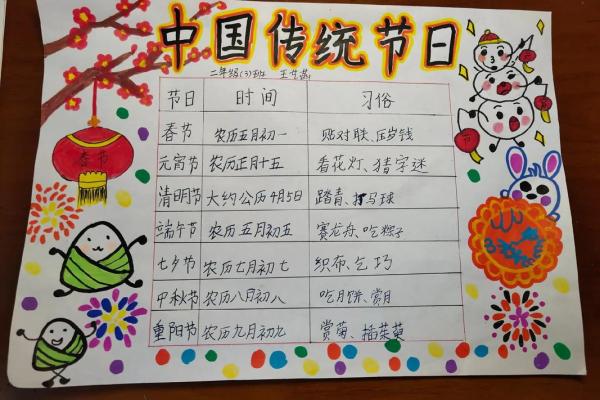 中国传统节日
二年级(3)班
春节
节日 时间 习俗
春节 农历五月初一 贴对联、压岁钱
元宵节 农历正月十五 看花灯、猜字谜
清明节 大约公历4月5日 踏青、打马球
端午节 农历五月初五 赛龙舟、吃粽子
七夕节 农历七月初七 织布、乞巧
中秋节 农历八月初八 吃月饼、赏月
重阳节 农历九月初九 赏菊、插茱萸